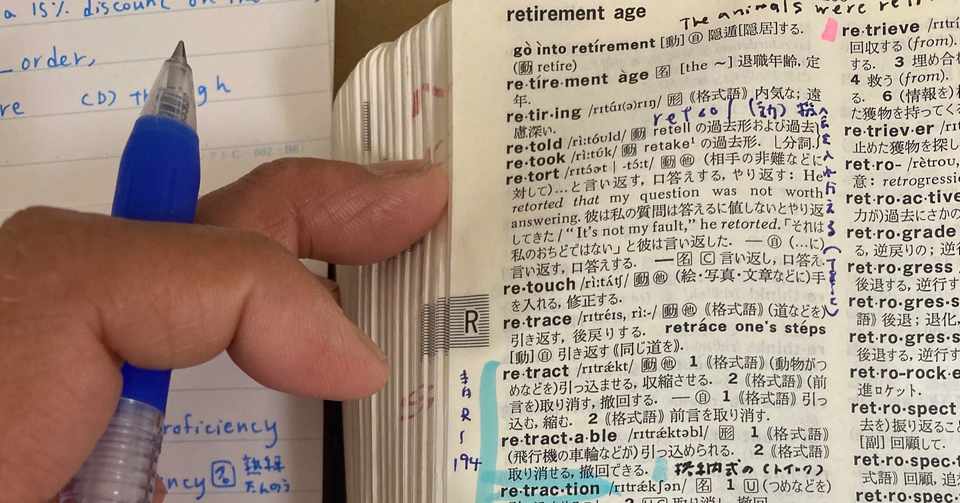 a 15% discount on the
order,
re (D) th gh
roficiency
iency 名 熟練
たんのう
retirement age
The animals were retr
gò ìnto retírement [動] 自 隠遁[隠居]する.
(動 retire)
re·tíre·ment àge 名 [the ~] 退職年齢, 定
年.
re·tir·ing /rɪtáɪ(ə)rɪŋ/ 形 《格式語》 内気な; 遠
慮深い.
re·told /rìːtóʊld/ 動 retell の過去形および過去
分詞.
re·took /rìːtʊ́k/ 動 retake¹ の過去形.
re·tort /rɪtɔ́ət | -tɔ́ːt/ 動 他 (相手の非難などに
対して)...と言い返す, 口答えする, やり返す: He
retorted that my question was not worth
answering. 彼は私の質問は答えるに値しないとやり返
してきた / “It's not my fault,” he retorted. 「それは
私のおちどではない」と彼は言い返した. — 自 (...に)
言い返す, 口答えする. — 名 C 言い返し, 口答え.
re·touch /rìːtʌ́tʃ/ 動 他 (絵・写真・文章などに)手
を入れる, 修正する.
re·trace /rɪtréɪs, rìː-/ 動 他 《格式語》 (道などを)
引き返す, 後戻りする. retráce one's stéps
[動] 自 引き返す《同じ道を》.
re·tract /rɪtrǽkt/ 動 他 1 《格式語》 (動物がつ
めなどを)引っ込ませる, 収縮させる. 2 《格式語》 (前
言を)取り消す, 撤回する. — 自 1 《格式語》 引っ
込む, 縮む. 2 《格式語》 前言を取り消す.
re·tract·a·ble /rɪtrǽktəbl/ 形 1 《格式語》
(飛行機の車輪などが)引っ込められる. 2 《格式語》
取り消せる, 撤回できる. 格納式の (トイック)
re·trac·tion /rɪtrǽkʃən/ 名 1 U (つめなどを)
R
194
re·trieve /rɪtrí
回収する (from).
する. 3 埋め合
4 救う (from).
る. 6 (情報を)
た獲物を持ってく
re·triev·er /rɪtrí
止めた獲物を探し
ret·ro- /rètroʊ,
意: retrogressi
ret·ro·ac·tive
力が)過去にさかの
ret·ro·grade
る, 逆戻りの; 逆行
ret·ro·gress
後退する, 逆行す
ret·ro·gres·s
語》 後退; 退化,
ret·ro·gres·s
後退する, 逆行す
ret·ro-rock·e
進ロケット.
ret·ro·spect
去を)振り返ること
[副] 回顧して.
ret·ro·spec·t
式語》 回顧, 追
ret·ro·spec